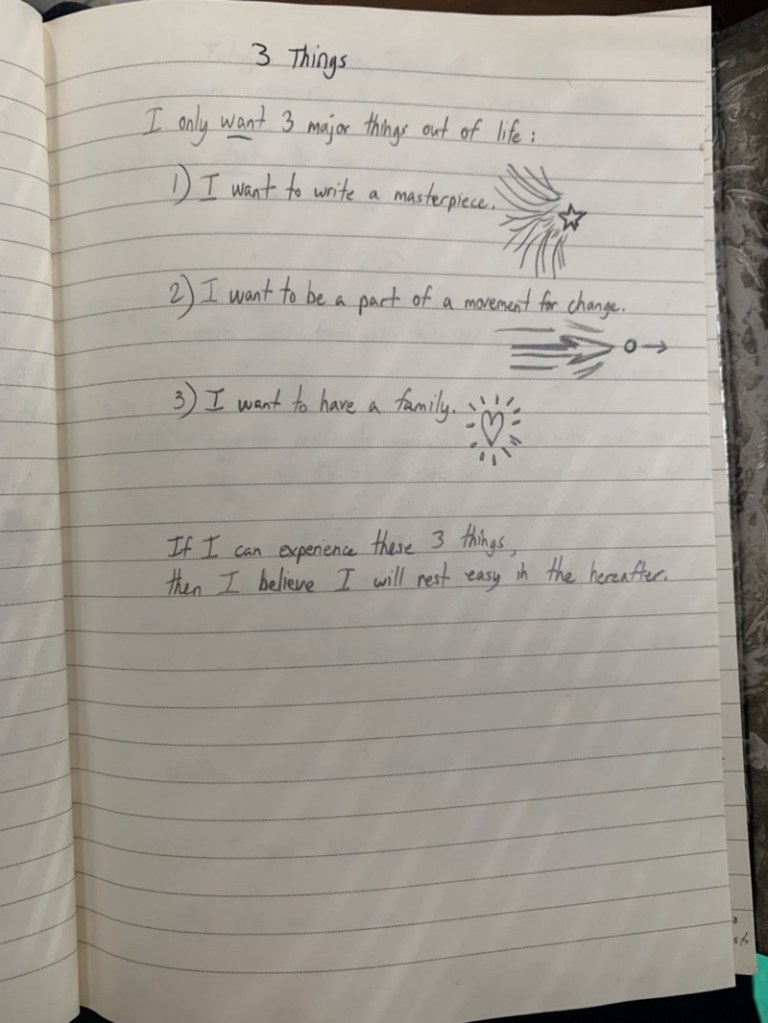 3 Things
I only want 3 major things out of life:
1) I want to write a masterpiece.
2) I want to be a part of a movement for change.
3) I want to have a family.
If I can experience these 3 things,
then I believe I will rest easy in the hereafter.